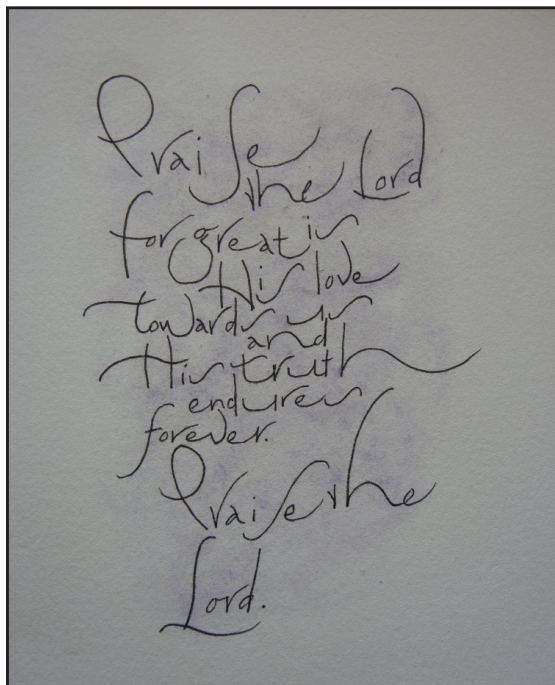 Praise
the Lord
for great is
His love
towards us
and
His truth
endures
forever.
Praise the
Lord.